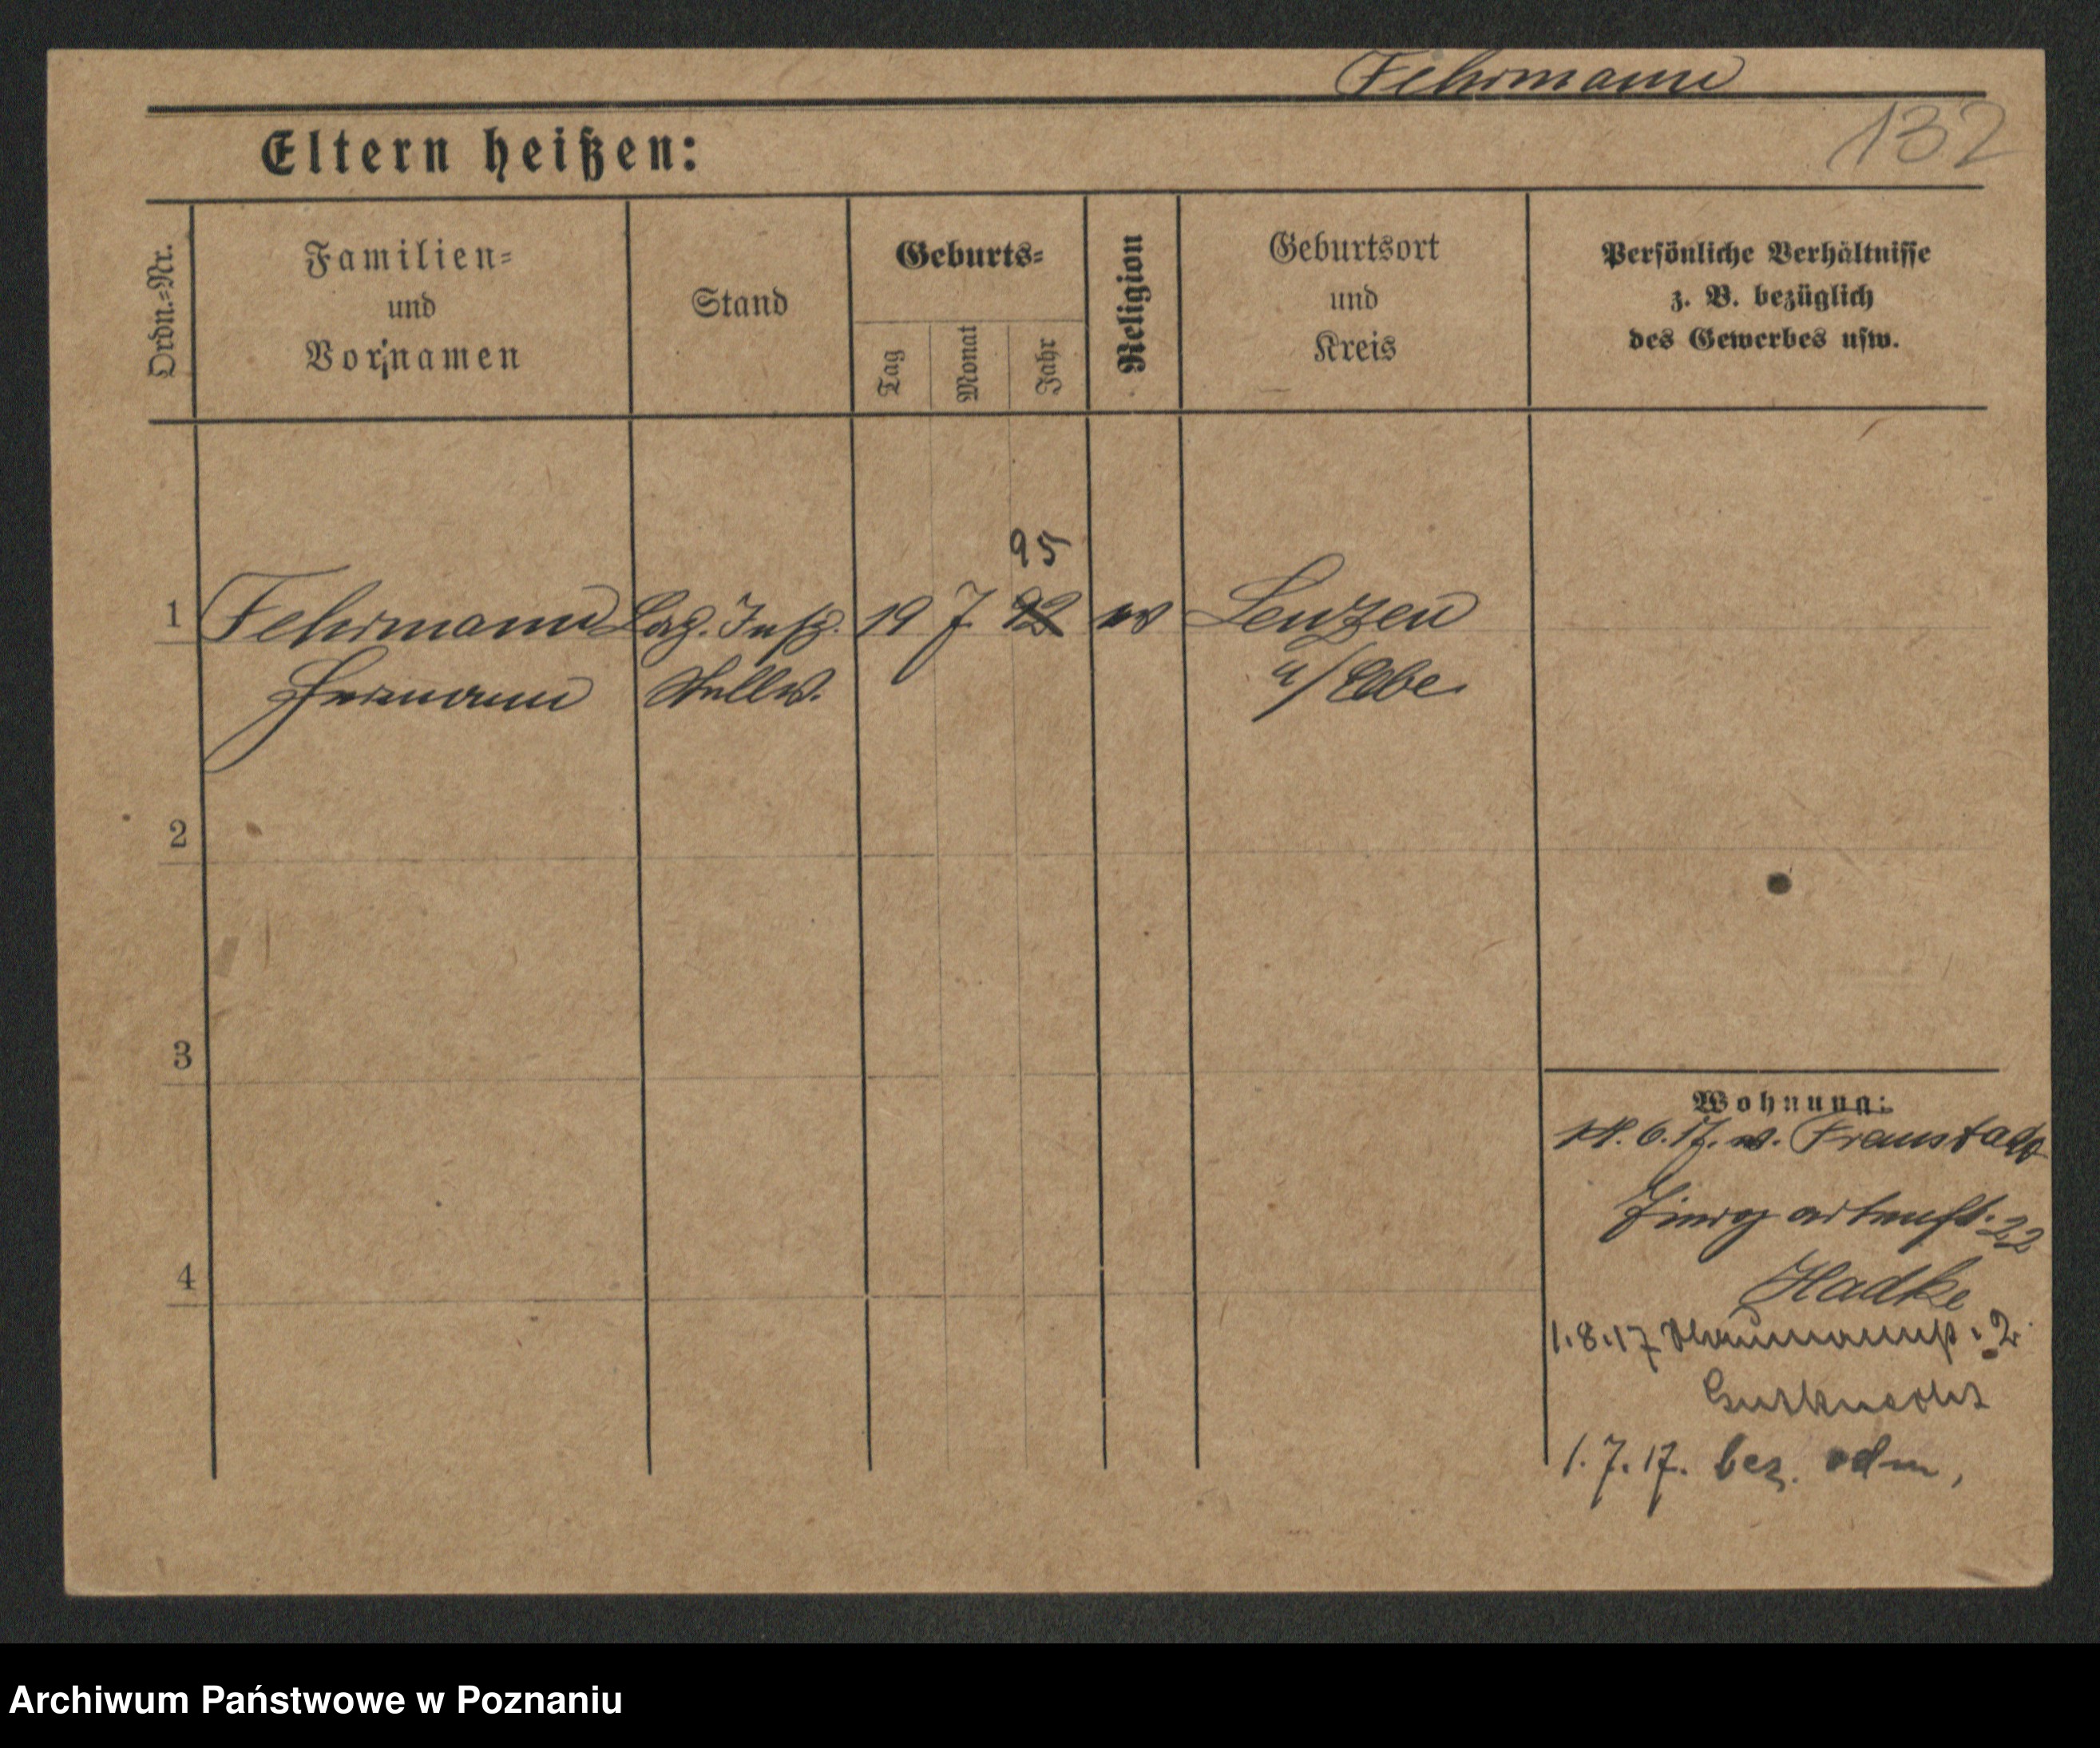 Fehrmann
132
Eltern heißen:
Ordn.=Nr.
Familien=
und
Vornamen
Stand
Geburts=
Tag
Monat
Jahr
Religion
Geburtsort
und
Kreis
Persönliche Verhältnisse
z. B. bezüglich
des Gewerbes usw.
95
1 Fehrmann Laz. Insp. 19 7. 92 ev Lenzen
Hermann Stellv. a/Elbe
2
3
4
Wohnung:
6. 17. v. Fraustadt
22
Hadke
1.8.17 2
1. 7. 17. bez.